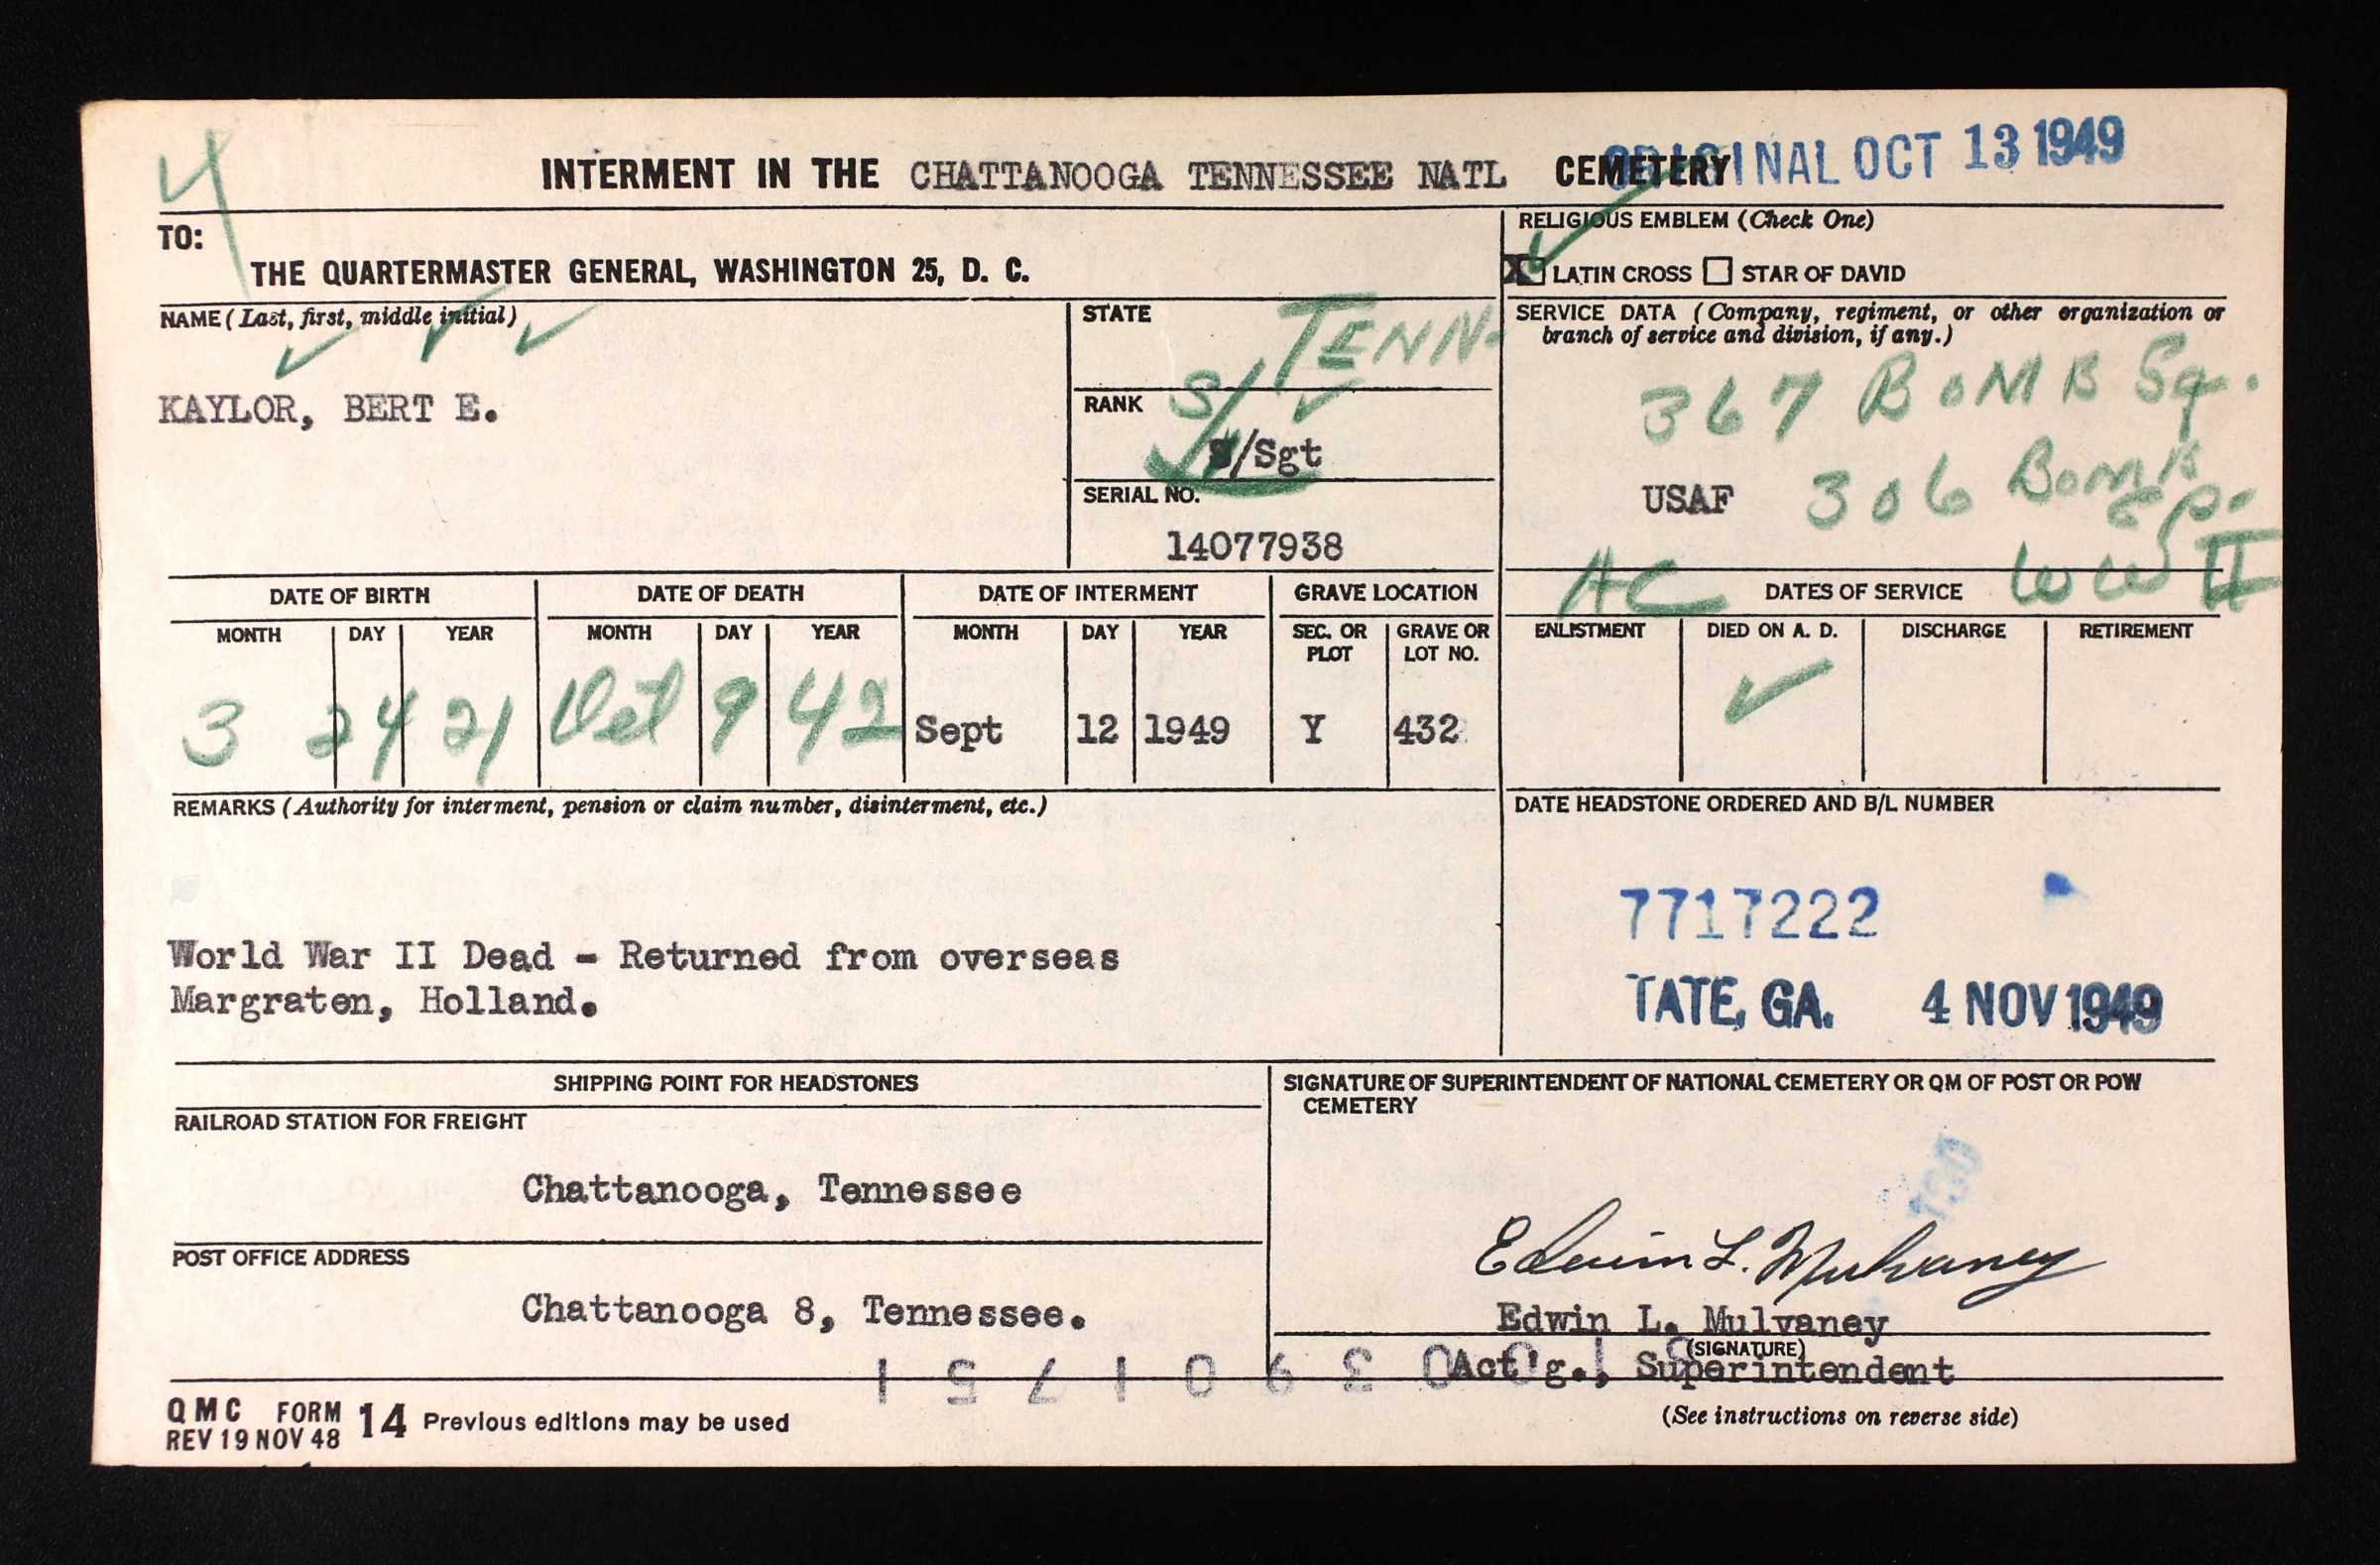 4
INTERMENT IN THE CHATTANOOGA TENNESSEE NATL CEMETERY
ORIGINAL OCT 13 1949
TO:
THE QUARTERMASTER GENERAL, WASHINGTON 25, D. C.
RELIGIOUS EMBLEM (Check One)
X LATIN CROSS STAR OF DAVID
NAME (Last, first, middle initial)
KAYLOR, BERT E.
STATE
TENN.
RANK
S/
S/Sgt
SERIAL NO.
14077938
SERVICE DATA (Company, regiment, or other organization or
branch of service and division, if any.)
367 BOMB Sq.
USAF 306 BOMB
GP.
AC WW II
DATE OF BIRTH DATE OF DEATH DATE OF INTERMENT GRAVE LOCATION DATES OF SERVICE
MONTH DAY YEAR MONTH DAY YEAR MONTH DAY YEAR SEC. OR PLOT GRAVE OR LOT NO. ENLISTMENT DIED ON A. D. DISCHARGE RETIREMENT
3 24 21 Oct 9 42 Sept 12 1949 Y 432
REMARKS (Authority for interment, pension or claim number, disinterment, etc.)
World War II Dead - Returned from overseas
Margraten, Holland.
DATE HEADSTONE ORDERED AND B/L NUMBER
7717222
TATE, GA. 4 NOV 1949
SHIPPING POINT FOR HEADSTONES
RAILROAD STATION FOR FREIGHT
Chattanooga, Tennessee
POST OFFICE ADDRESS
Chattanooga 8, Tennessee.
SIGNATURE OF SUPERINTENDENT OF NATIONAL CEMETERY OR QM OF POST OR POW
CEMETERY
130
Edwin L. Mulvaney
Edwin L. Mulvaney
(SIGNATURE)
Act'g., Superintendent
QMC FORM 14 Previous editions may be used
REV 19 NOV 48
(See instructions on reverse side)